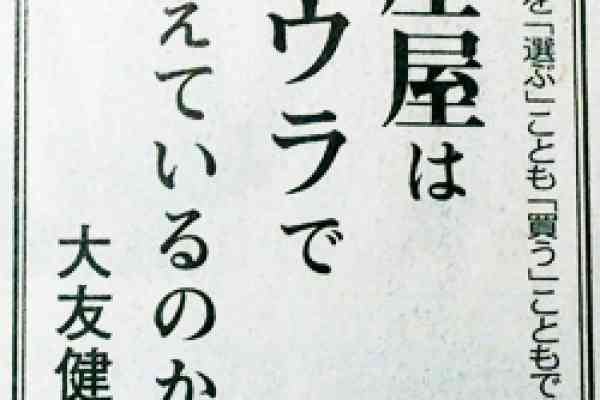 を「選ぶ」ことも「買う」こともで
屋は
ウラで
えているのか
大友健